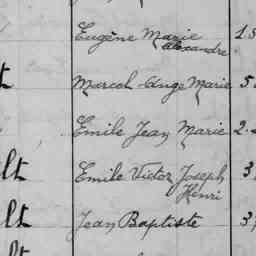 Eugène Marie 1.
Alexandre
t Marcel Ange Marie 5
Emile Jean Marie 2.
lt Emile Victor Joseph 3
Henri
lt Jean Baptiste 3
lt